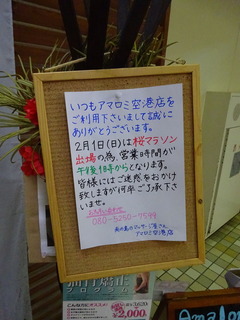 いつもアマロミ空港店を
ご利用下さいまして誠に
ありがとうございます。
2月1日(日)は桜マラソン
出場の為、営業時間が
午後1時からとなります。
皆様にはご迷惑をおかけ
致しますが何卒ご了承下さ
いませ。
お問い合わせ
080-5250-7599
アマロミ空港店
骨盤矯正
プログラム
¥2,000
Amalom